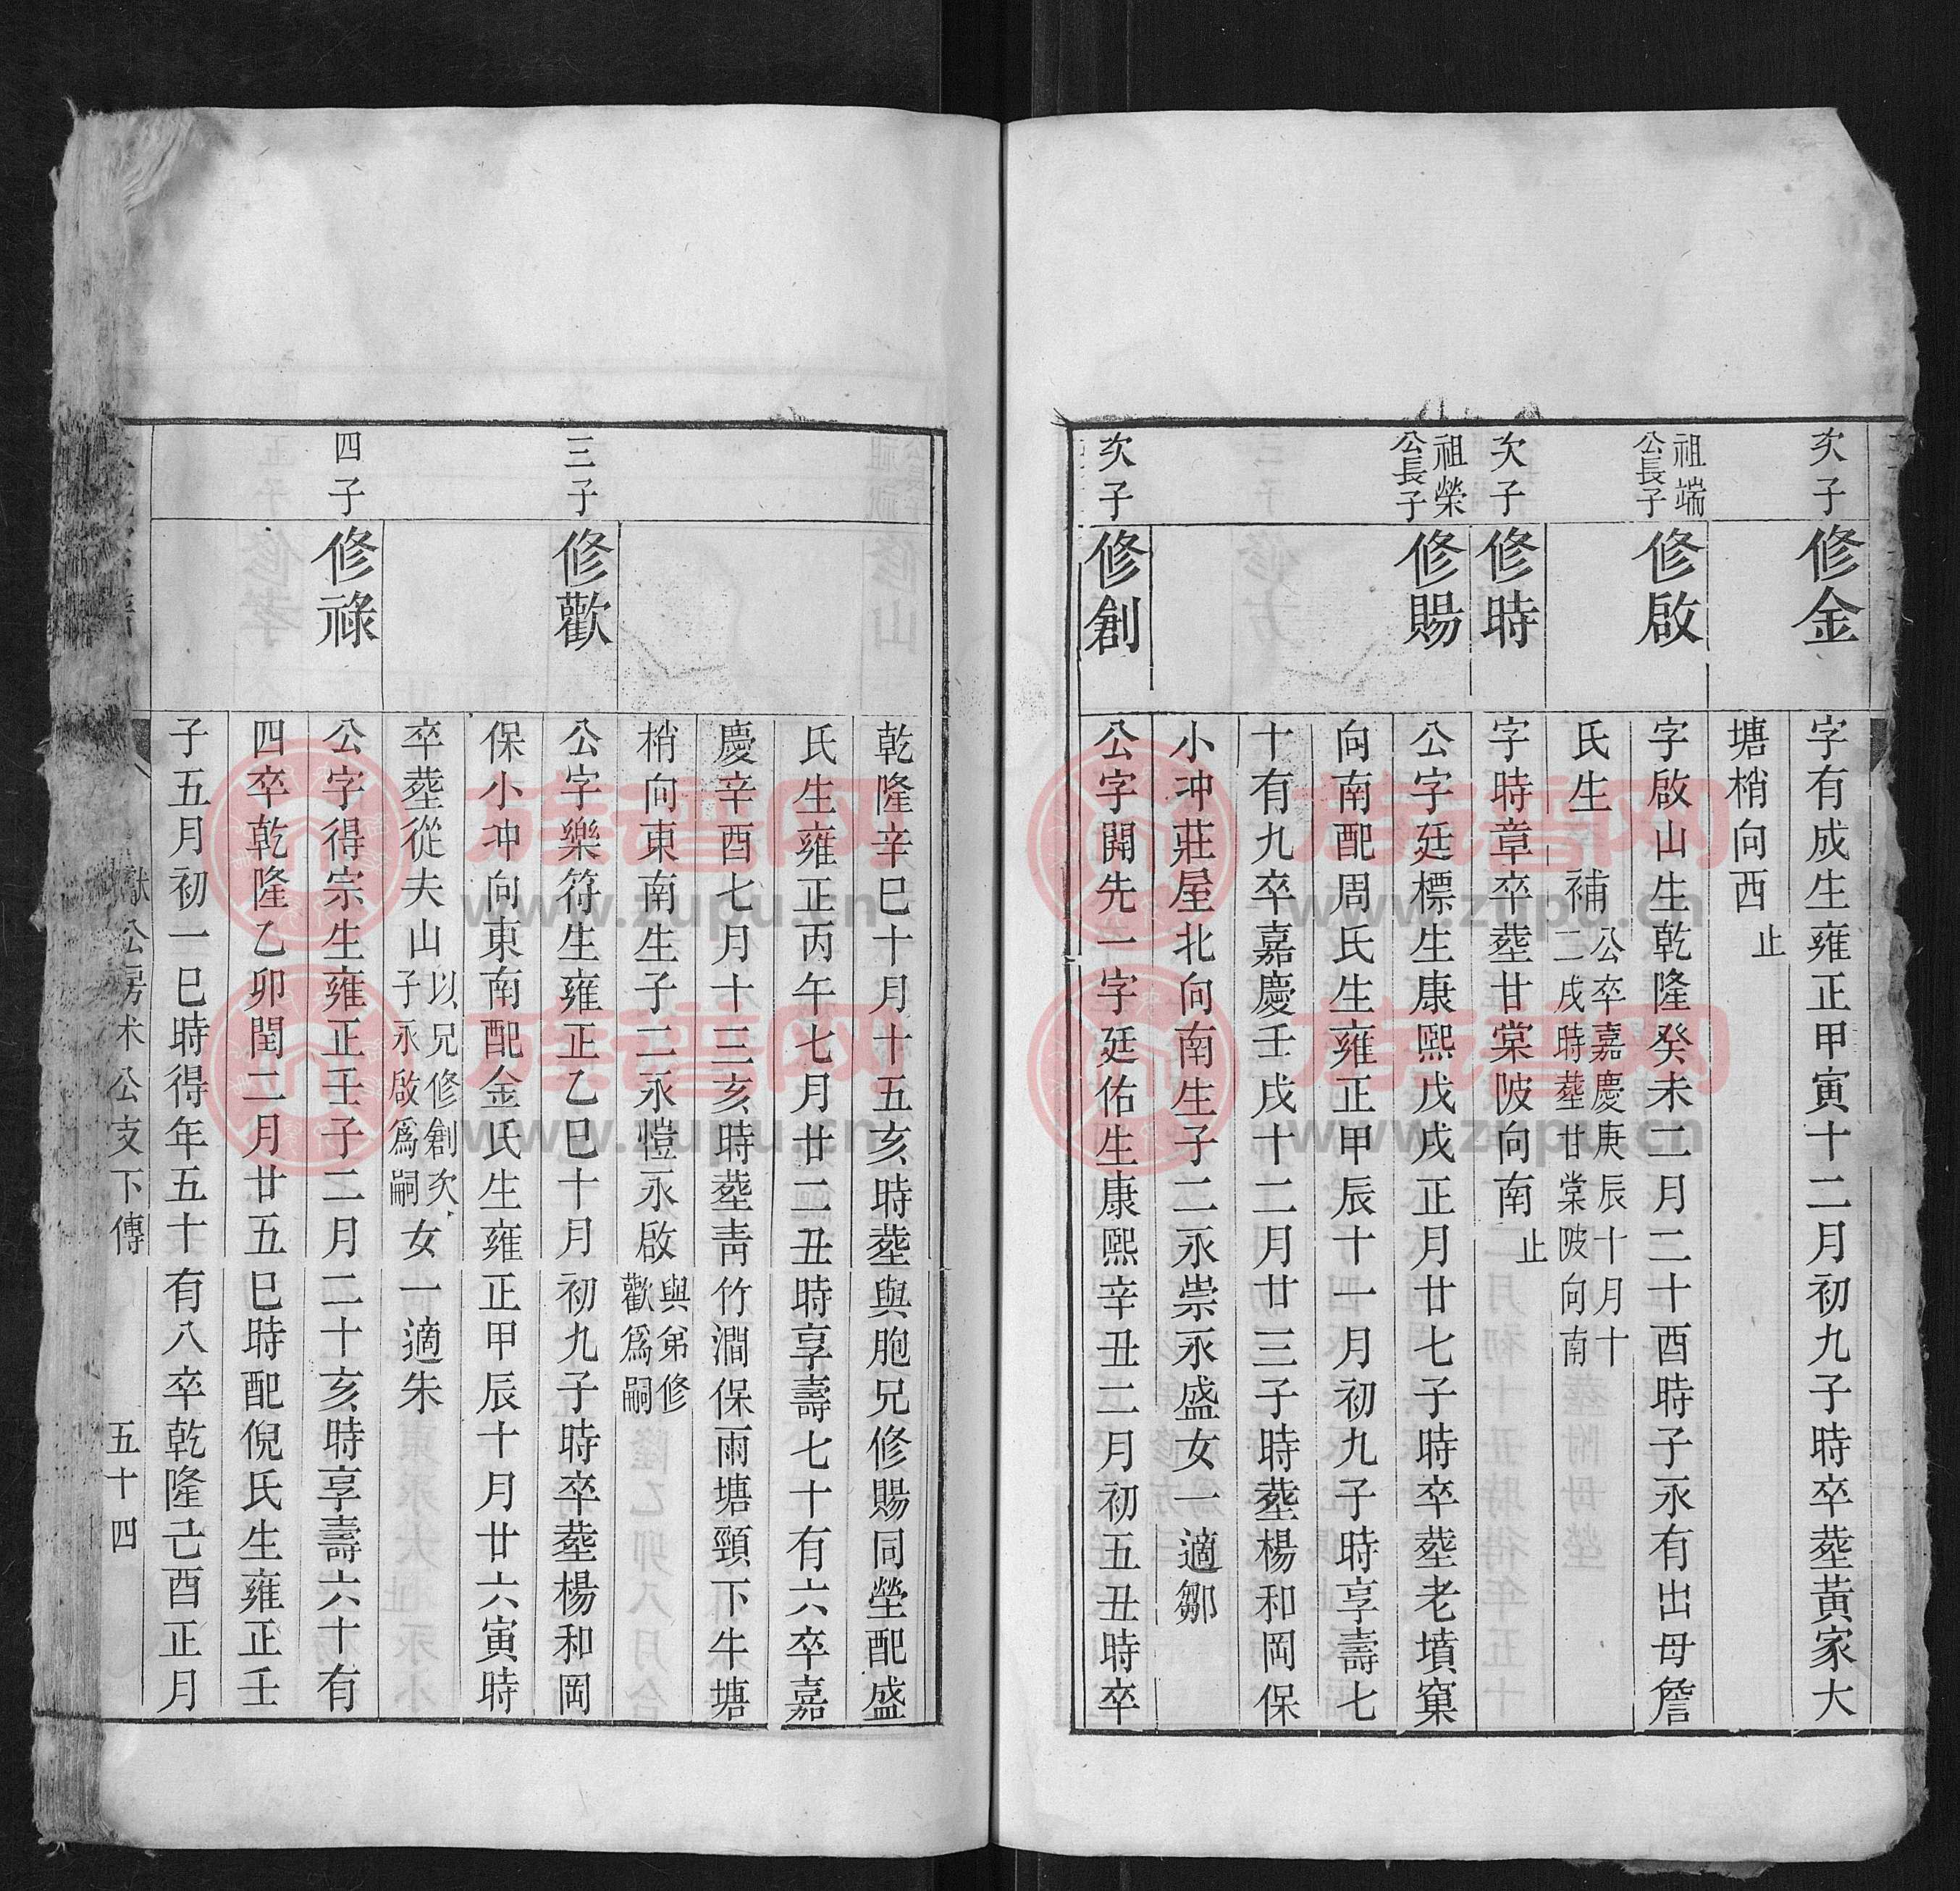 次子
修金
字有成生雍正甲寅十二月初九子時卒塟黃家大
塘梢向西止
祖端公長子
修啟
字啟山生乾隆癸未二月二十酉時子永有出母詹
氏生
補
公卒嘉慶庚辰十月十
二戌時塟甘棠陂向南
次子
修時
字時章卒塟甘棠陂向南止
祖榮公長子
修賜
公字廷標生康熙戊戌正月廿七子時卒塟老墳窠
向南配周氏生雍正甲辰十一月初九子時享壽七
十有九卒嘉慶壬戌十二月廿三子時塟楊和岡保
小冲莊屋北向南生子二永崇永盛女一適鄒
次子
修創
公字開先一字廷佑生康熙辛丑二月初五丑時卒
乾隆辛巳十月十五亥時塟與胞兄修賜同塋配盛
氏生雍正丙午七月廿二丑時享壽七十有六卒嘉
慶辛酉七月十三亥時塟靑竹澗保雨塘頸下牛塘
梢向東南生子二永愷永啟
與弟修
歡爲嗣
三子
修歡
公字樂符生雍正乙巳十月初九子時卒塟楊和岡
保小冲向東南配金氏生雍正甲辰十月廿六寅時
卒塟從夫山
以兄修創次
子永啟爲嗣
女一適朱
四子
修祿
公字得宗生雍正壬子二月二十亥時享壽六十有
四卒乾隆乙卯閏二月廿五巳時配倪氏生雍正壬
子五月初一巳時得年五十有八卒乾隆己酉正月
公房木公支下傳
五十四
族譜网
www.zupu.cn
族譜网
www.zupu.cn
族譜网
www.zupu.cn
族譜网
www.zupu.cn